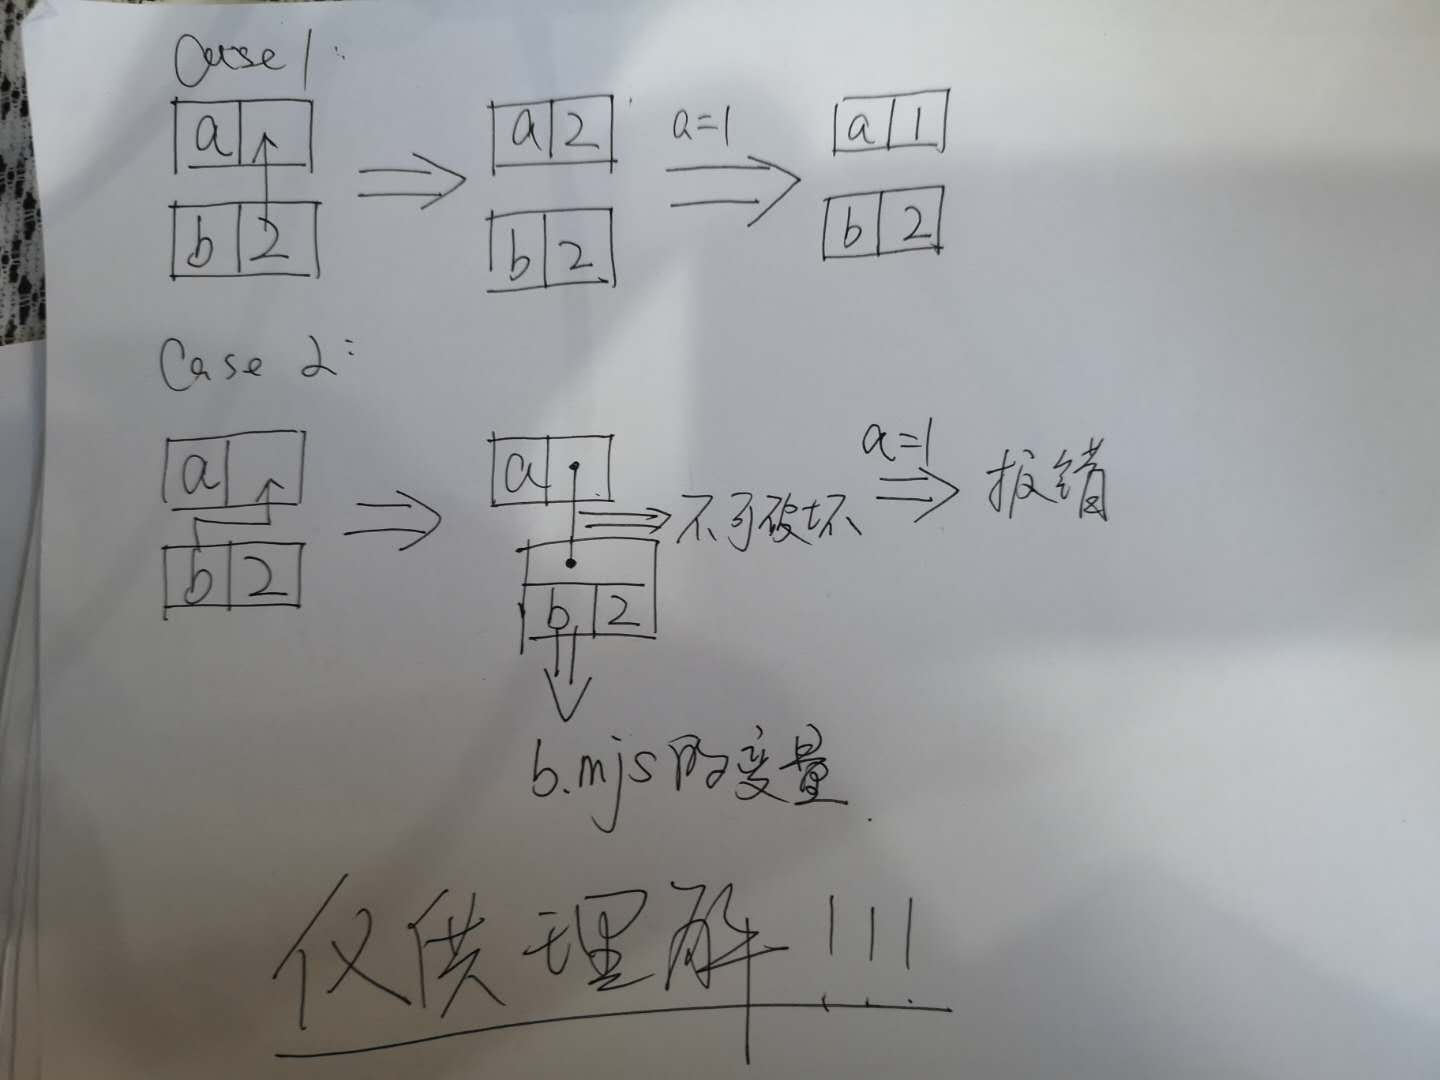 Case 1:
a
b 2
a 2
b 2
a=1
a 1
b 2
Case 2:
a
b 2
a
b 2
不可破坏
a=1
报错
b.mjs的变量
仅供理解!!!